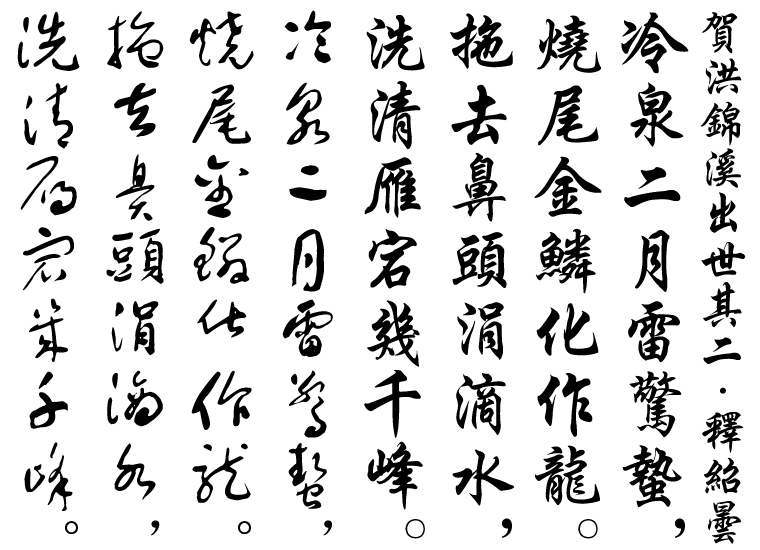 賀洪錦溪出世其二·釋紹曇
冷泉二月雷驚蟄，
燒尾金鱗化作龍。
拖去鼻頭涓滴水，
洗清雁宕幾千峰。
冷泉二月雷驚蟄，
燒尾金鱗化作龍。
拖去鼻頭涓滴水，
洗清雁宕幾千峰。